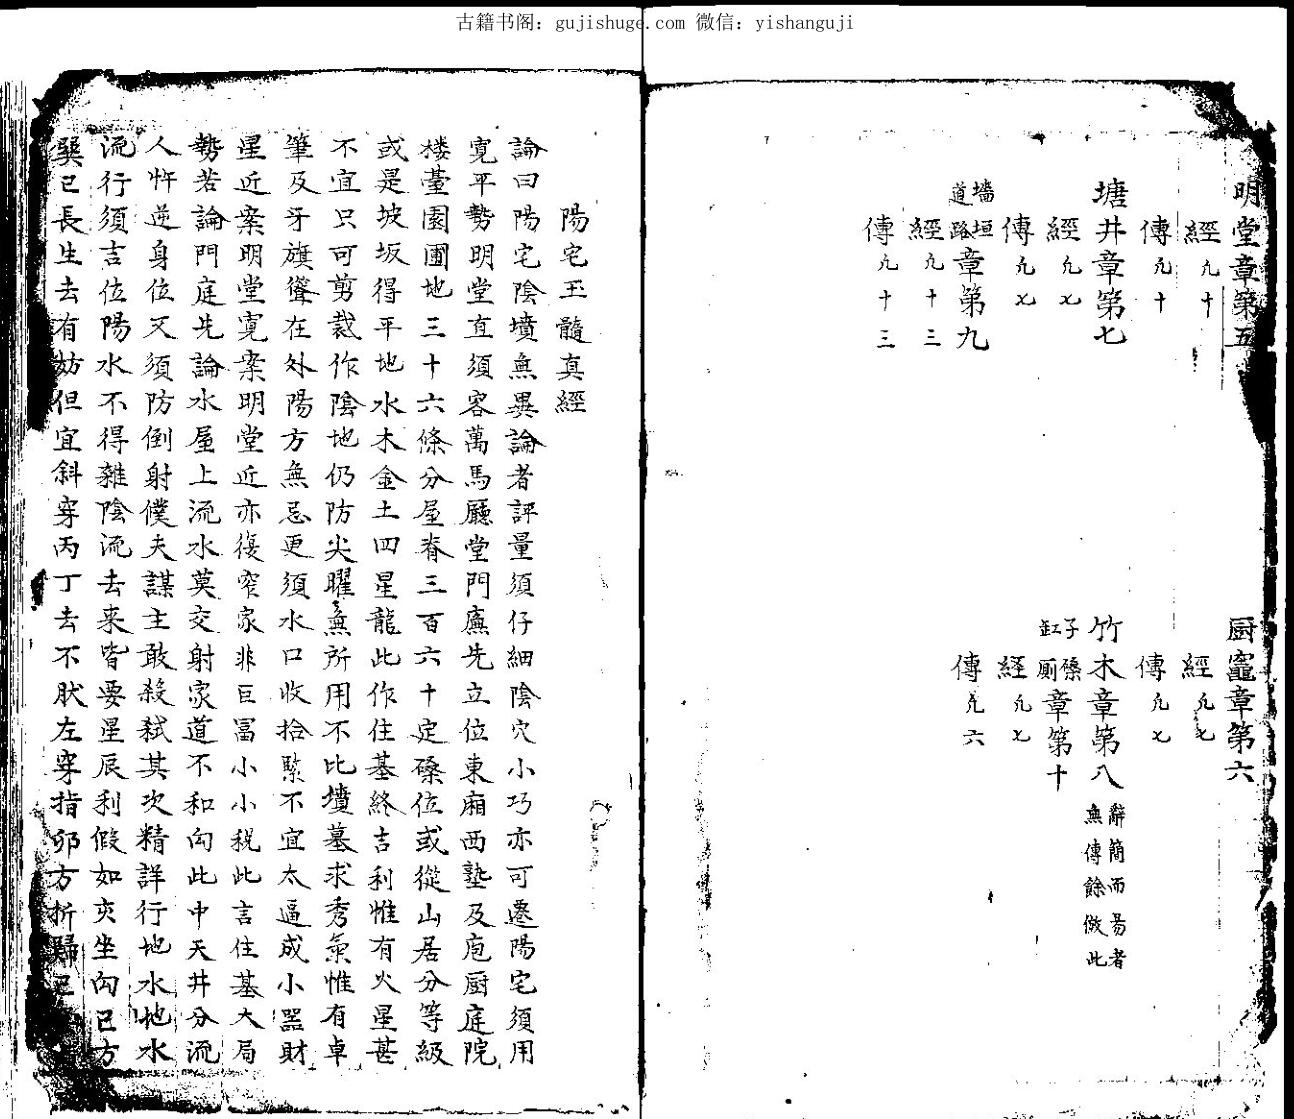 古籍书阁：gujishuge.com 微信：yishanguji
明堂章第五
經凢十
傳凢十
塘井章第七
經凢七
傳凢七
墻垣道路章第九
經凢十三
傳凢十三
厨竈章第六
經凢七
傳凢七
竹木章第八辭簡而易者無傳餘倣此
章第十
經凢七
傳凢六
陽宅玉髓真經
論曰陽宅陰墳無異論者評量須仔細陰穴小巧亦可遷陽宅須用
寛平勢明堂直須容萬馬廳堂門廡先立位東廂西塾及庖厨庭院
楼臺園圃地三十六條分屋脊三百六十定磉位或從山居分等級
或是坡坂得平地水木金土四星龍此作住基終吉利惟有火星甚
不宜只可剪裁作陰地仍防尖曜無所用不比墳墓求秀氣惟有卓
筆及牙旗聳在外陽方無忌更須水口收拾緊不宜太逼成小噐財
星近案明堂寬案明堂近亦復窄家非巨冨小小稅此言住基大局
勢若論門庭先論水屋上流水莫交射家道不和向此中天井分流
人忤逆身位又須防倒射僕夫謀主敢殺弑其次精詳行地水地水
流行須吉位陽水不得雜陰流去来皆要星辰利假如亥坐向巳方
巽巳長生去有妨但宜斜穿丙丁去不肰左穿指夘方折歸巳